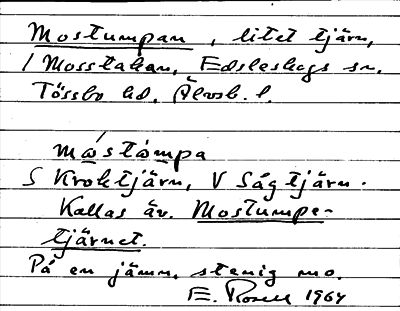 Mostumpan, litet tjärn,
i Mosstakan, Edsleskogs sn.
Tössbo hd. Älvsb. l.
måstómpa
S Kroktjärn, V Sågtjärn.
Kallas äv. Mostumpe-
tjärnet.
På en jämn, stenig mo.
E. Rosell 1964